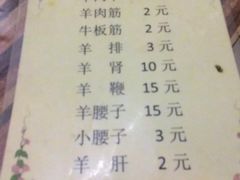 羊肉筋 2 元
牛板筋 2 元
羊 排 3 元
羊 肾 10 元
羊 鞭 15 元
羊腰子 15 元
小腰子 3 元
羊 肝 2 元